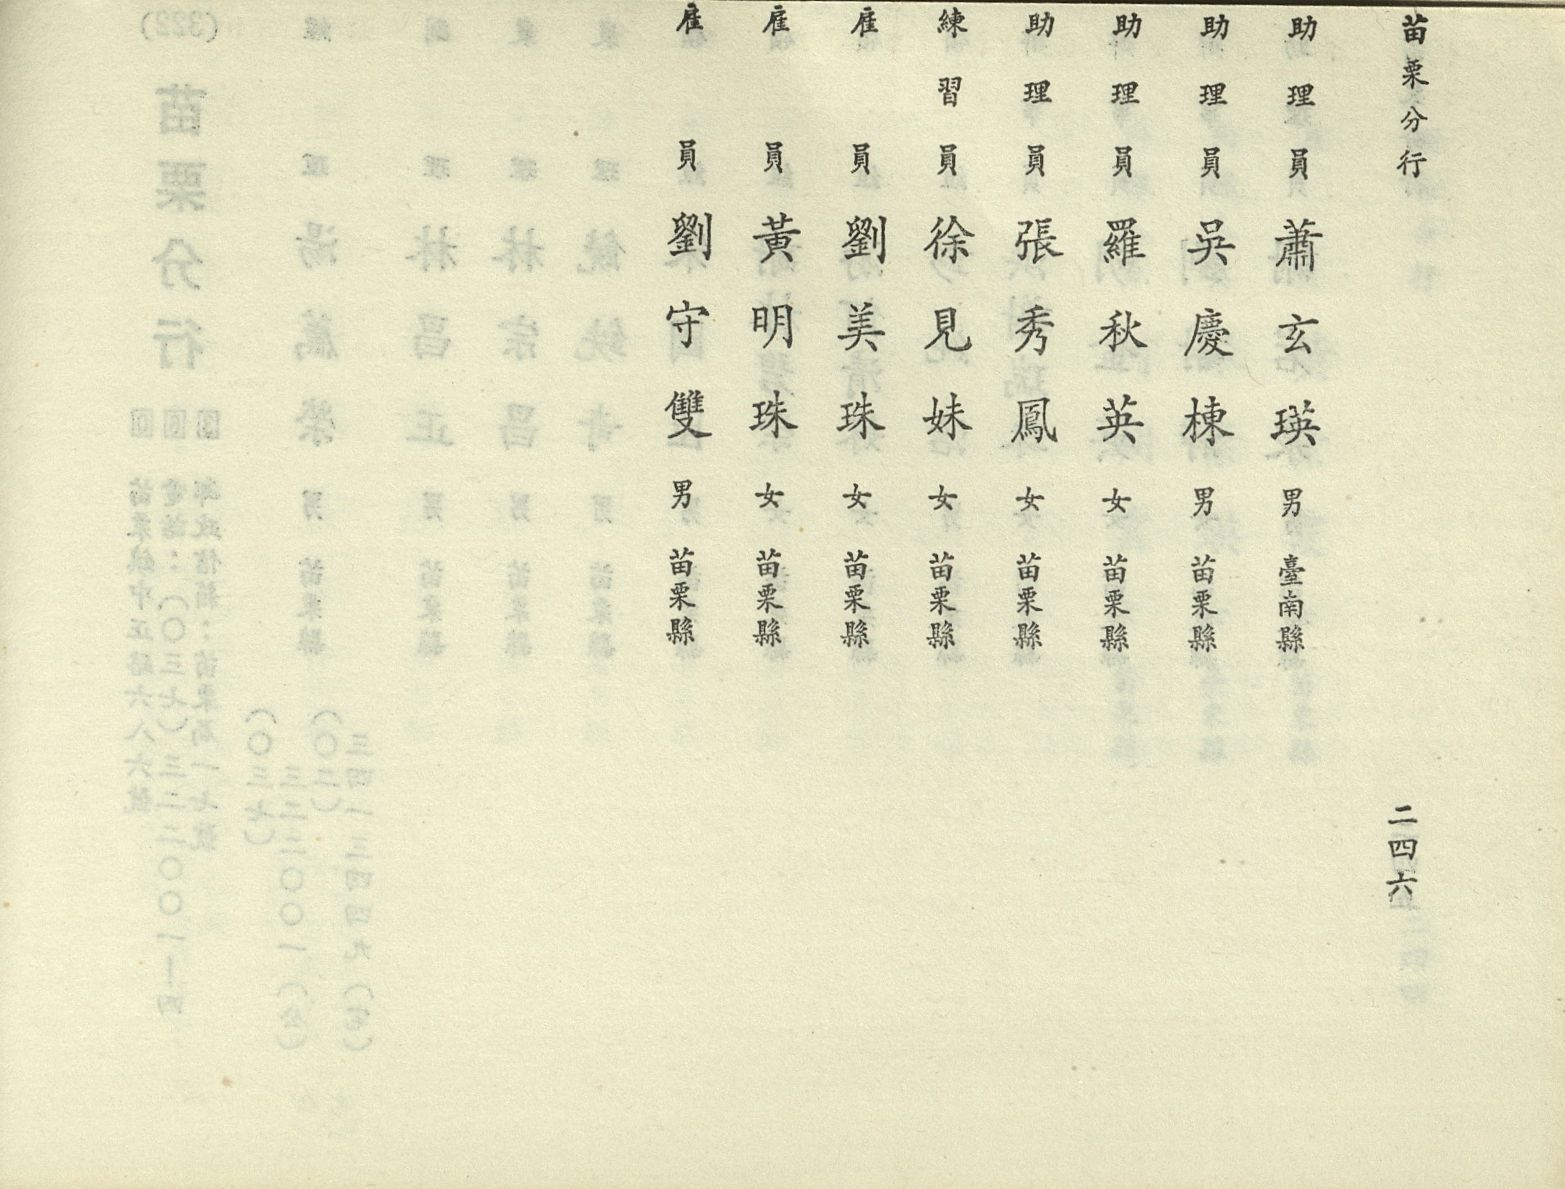 苗栗分行
助理員 蕭玄瑛 男 臺南縣
助理員 吳慶棟 男 苗栗縣
助理員 羅秋英 女 苗栗縣
助理員 張秀鳳 女 苗栗縣
練習員 徐見妹 女 苗栗縣
雇員 劉美珠 女 苗栗縣
雇員 黃明珠 女 苗栗縣
雇員 劉守雙 男 苗栗縣
二四六